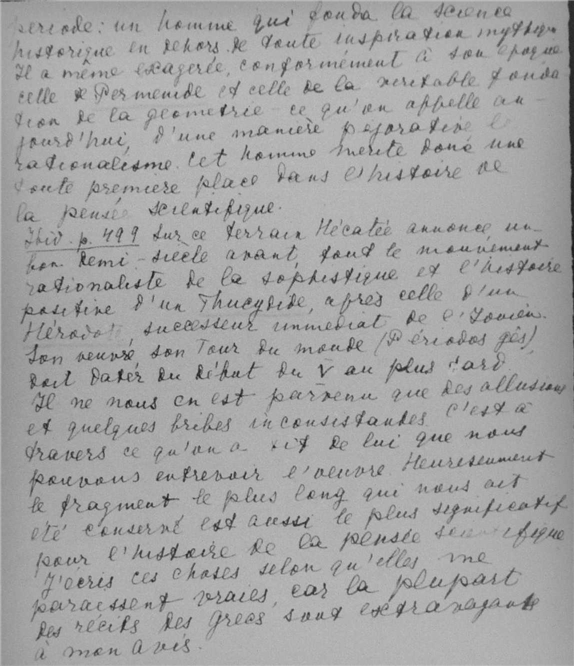 periode: un homme qui fonda la science
historique en dehors de toute inspiration mythique
Il a même exagerée, conformément à son époque
celle de Permenide et celle de la veritable fonda
tion de la geometrie - ce qu'on appelle au-
jourd'hui, d'une manière pejorative le
rationalisme. Cet homme merite donc une
toute premiere place dans l'histoire de
la pensée scientifique.
Ibid. p. 499 Sur ce terrain Hécatée annonce, un
bon demi-siècle avant, tout le mouvement
rationaliste de la sophistique et l'histoire
positive d'un Thucydide, après celle d'un
Hérodote successeur immediat de l'Ionien.
Son oeuvre son Tour du monde (Périodos gès)
doit dater du début du V au plus tard
Il ne nous en est parvenu que des allusions
et quelques bribes inconsistandes. C'est à
travers ce qu'on a dit de lui que nous
pouvons entrevoir l'oeuvre. Heureusement
le fragment le plus long qui nous ait
été conservé est aussi le plus significatif
pour l'histoire de la pensée scientifique
J'ecris ces choses selon qu'elles me
paraissent vraies, car la plupart
des recits des Grecs sont extravagants
à mon avis.